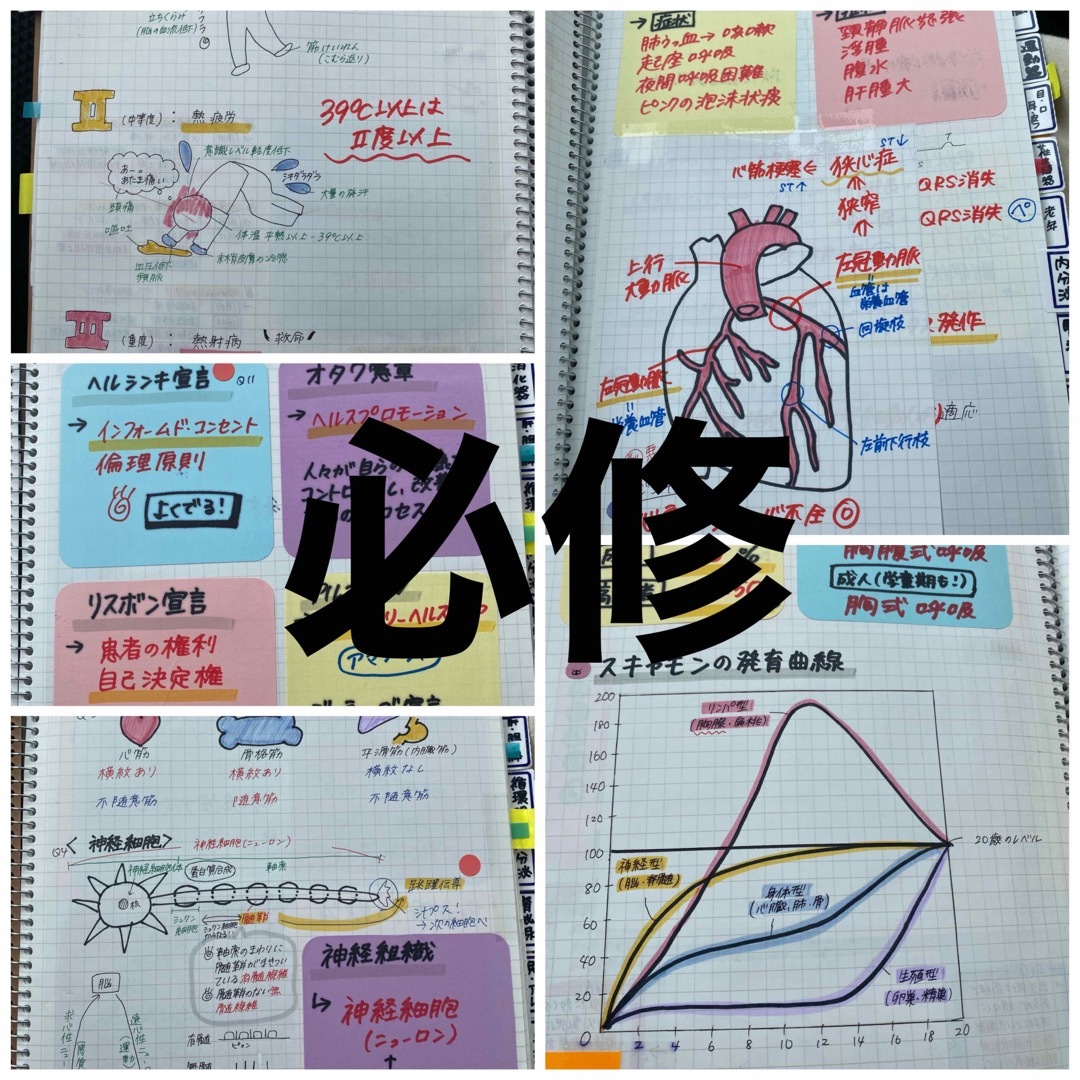 立ちくらみ
(脳の血流低下)
筋けいれん
(こむら返り)
II
(中等度): 熱疲労
39℃以上は
II度以上
意識レベル軽度低下
あー。
あたま痛い
汗ダラダラ
大量の発汗
頭痛
嘔吐
体温 平熱以上-39℃以上
血圧低下
頻脈
末梢皮膚の冷感
III
(重度): 熱射病
救命
症状
肺うっ血→咳嗽
起座呼吸
夜間呼吸困難
ピンクの泡沫状痰
頸静脈怒張
浮腫
腹水
肝腫大
運動器
老年
内分泌
ST↓
心筋梗塞⇐狭心症
ST↑
狭窄
QRS消失
QRS消失
上行
大動脈
左冠動脈
血管は
栄養血管
回旋枝
発作
右冠動脈
栄養血管
適応
左前下行枝
不全
ヘルシンキ宣言
Q11
→ インフォームド・コンセント
倫理原則
よくでる!
オタワ憲章
→ ヘルスプロモーション
人々が自らの
コントロールし、改善
プロセス
リスボン宣言
→ 患者の権利
自己決定権
必修
消化器
循環器
胸腹式呼吸
成人(学童期も!)
胸式呼吸
スキャモンの発育曲線
200
180
160
140
120
100
80
60
40
20
0
2 4 6 8 10 12 14 16 18 20
リンパ型
(胸腺・扁桃)
20歳のレベル
神経型
(脳・脊髄)
身体型
(心臓、肺・骨)
生殖型
(卵巣・精巣)
心筋
横紋あり
不随意筋
骨格筋
横紋あり
随意筋
平滑筋(内臓筋)
横紋なし
不随意筋
Q4
<神経細胞>
神経細胞(ニューロン)
神経細胞体
(蛋白質合成)
軸索
核
跳躍伝導
シュワン
細胞核
髄鞘
シナプス!
→次の細胞へ
軸索のまわりに
髄鞘がまきついている有髄線維
髄鞘のない無髄線維
脳
有髄
ピョン
神経組織
↳ 神経細胞
(ニューロン)